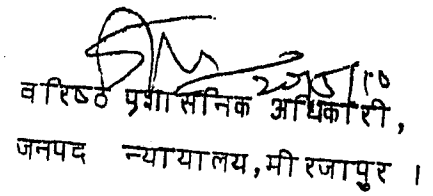 वरिष्ठ प्रशासनिक अधिकारी,
जनपद न्यायालय, मीरजापुर ।